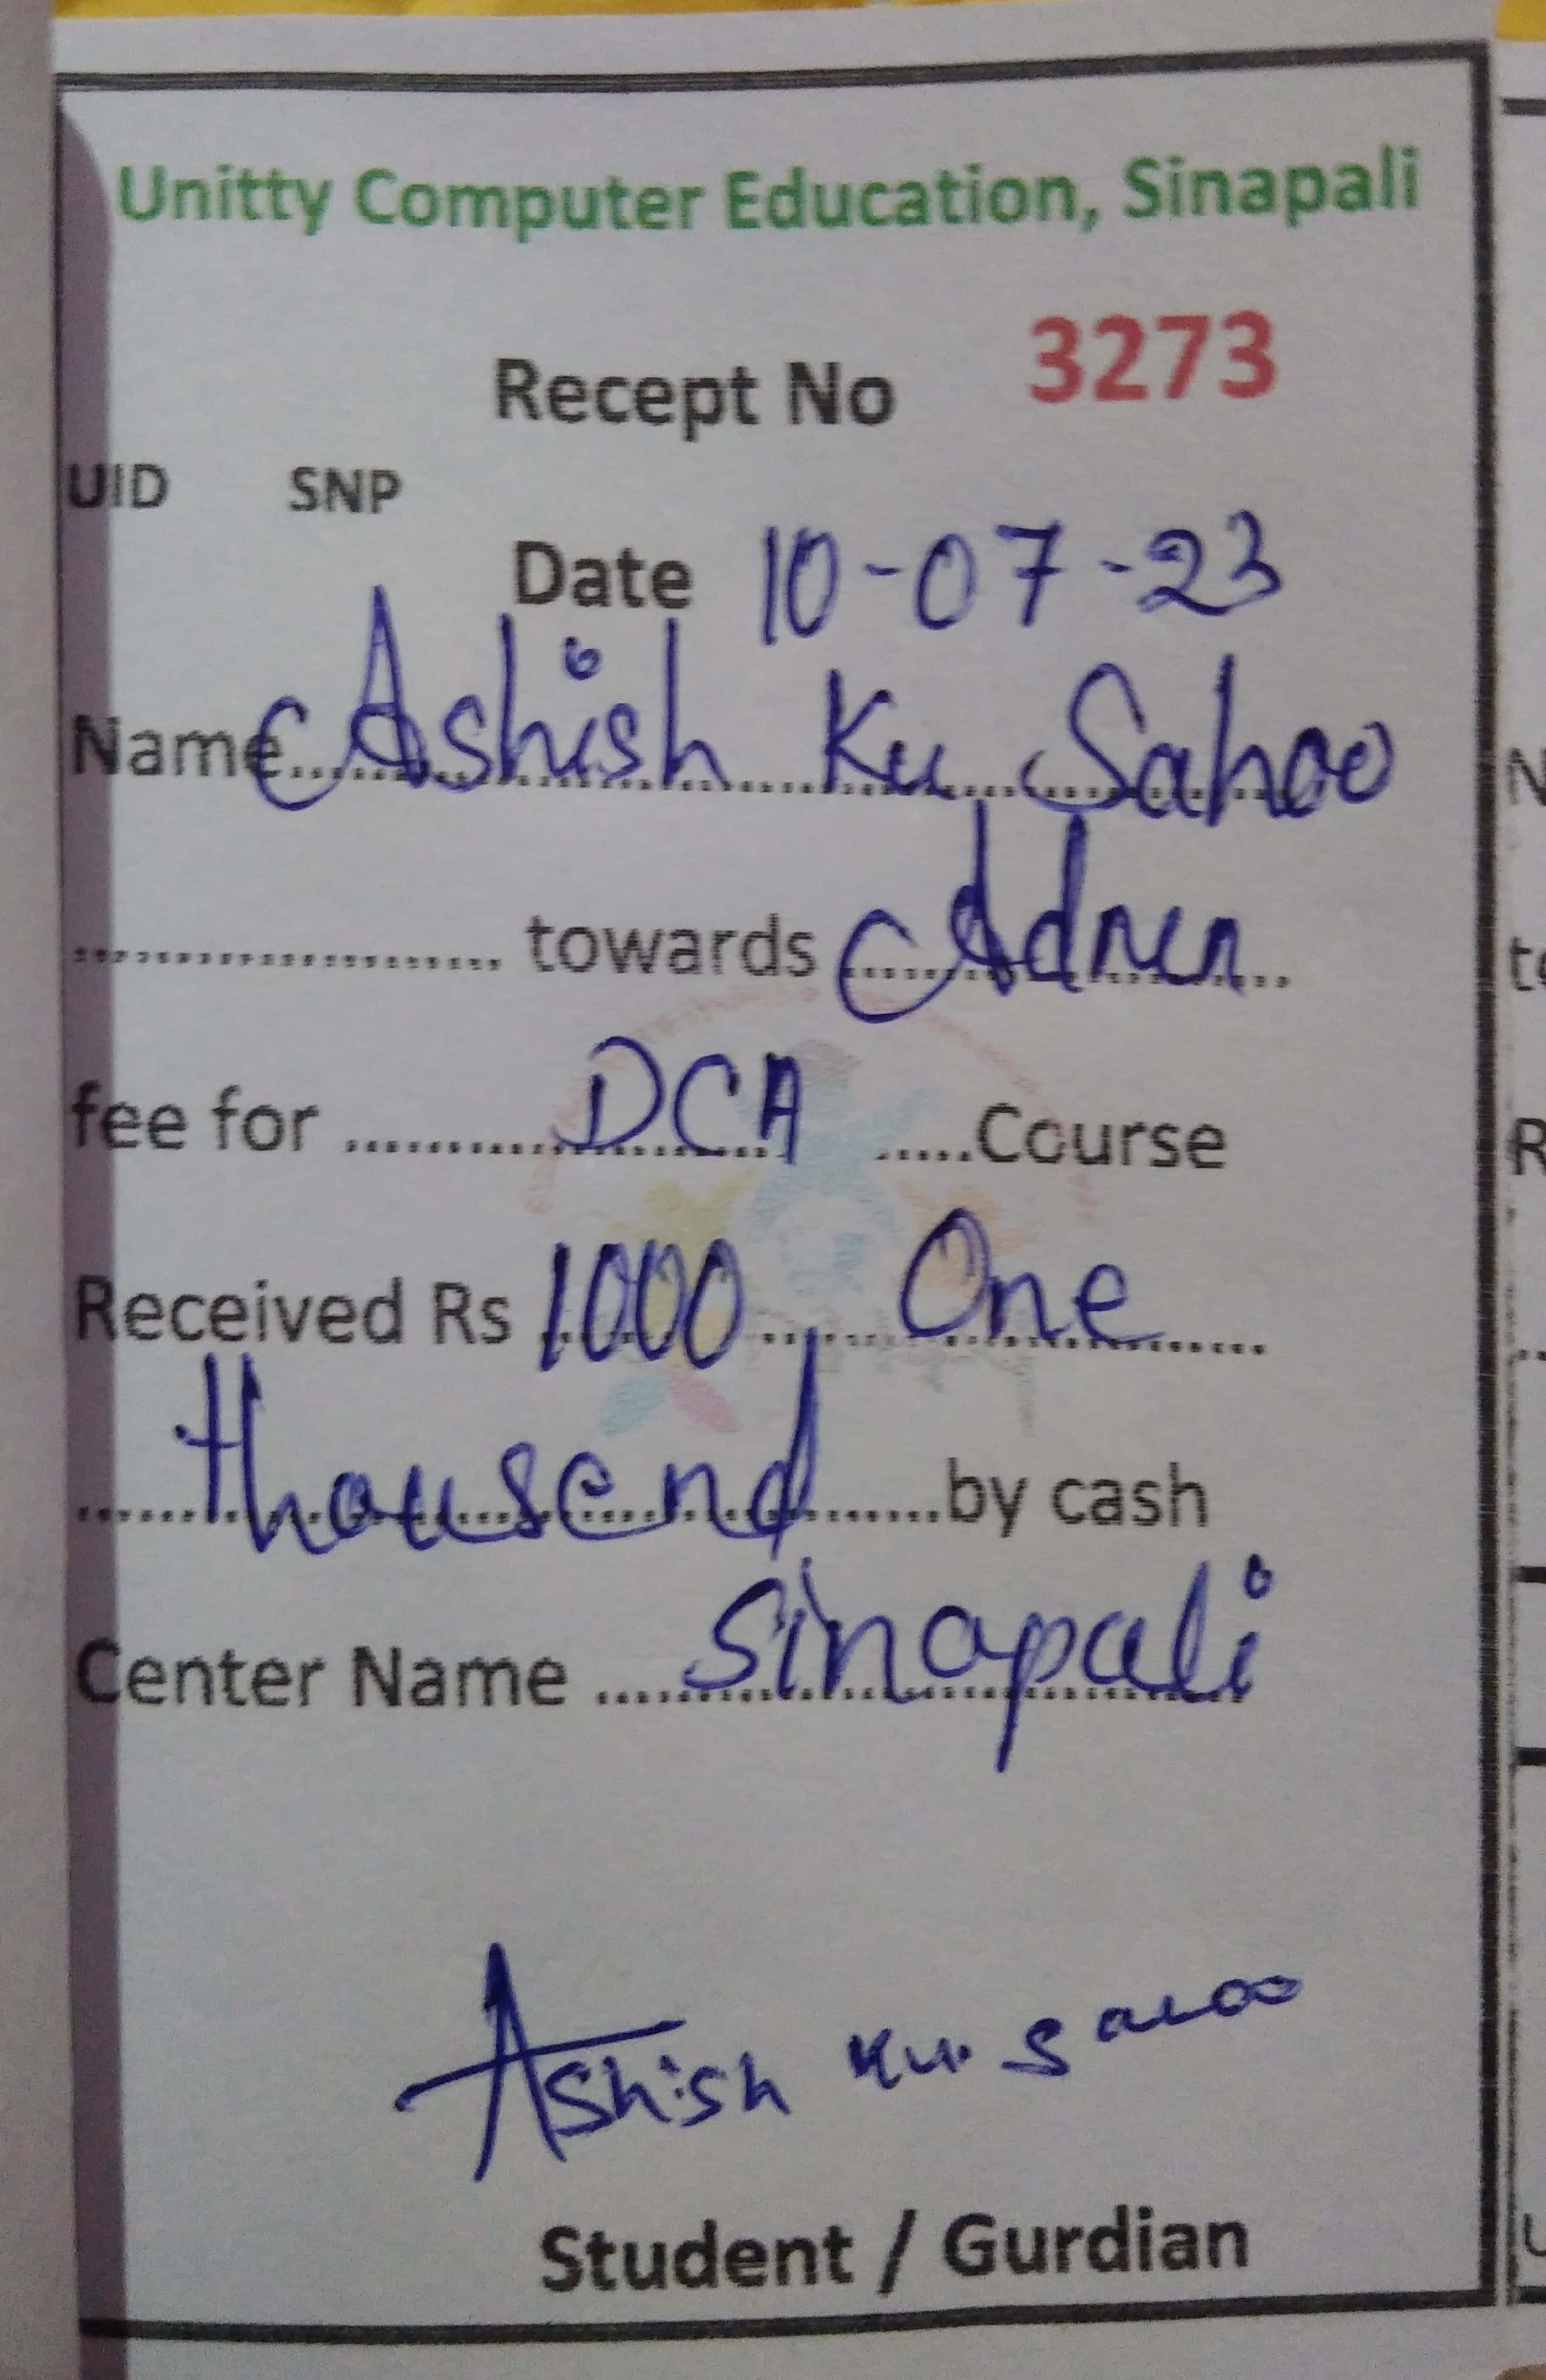 Unitty Computer Education, Sinapali
Recept No 3273
UID SNP
Date 10-07-23
Name Ashish Ku Sahoo
.................... towards Admn
fee for .......... DCA .....Course
Received Rs 1000 One
thousend ........by cash
Center Name .... Sinapali
Ashish Ku. Sahoo
Student / Gurdian